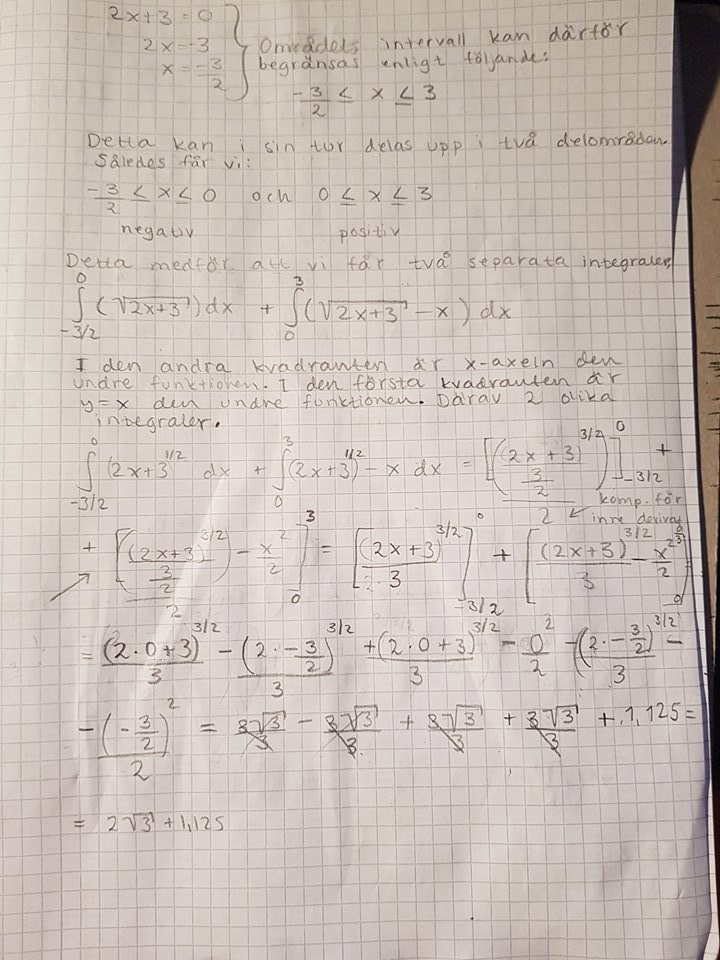 2x+3=0
2x=-3
x=-3/2
Områdets intervall kan därför
begränsas enligt följande:
-3/2 ≤ x ≤ 3
Detta kan i sin tur delas upp i två delområden.
Således får vi:
-3/2 ≤ x ≤ 0 och 0 ≤ x ≤ 3
negativ positiv
Detta medför att vi får två separata integraler
∫_{-3/2}^{0} (√2x+3) dx + ∫_{0}^{3} (√2x+3 - x) dx
I den andra kvadranten är x-axeln den
undre funktionen. I den första kvadranten är
y=x den undre funktionen. Därav 2 olika
integraler.
∫_{-3/2}^{0} (2x+3)^{1/2} dx + ∫_{0}^{3} (2x+3)^{1/2} - x dx = [((2x+3)^{3/2}/(3/2))/2]_{-3/2}^{0} +
komp. för
inre derivat
+ [((2x+3)^{3/2}/(3/2))/2 - x^2/2]_{0}^{3} = [(2x+3)^{3/2}/3]_{-3/2}^{0} + [(2x+3)^{3/2}/3 - x^2/2]_{0}^{3}
= (2·0+3)^{3/2}/3 - (2·-3/2)^{3/2}/3 + (2·0+3)^{3/2}/3 - 0^2/2 - (2·-3/2)^{3/2}/3 -
- (-3/2)^2/2 = 3√3/3 - 3√3/3 + 3√3/3 + 3√3/3 + 1,125 =
= 2√3 + 1,125